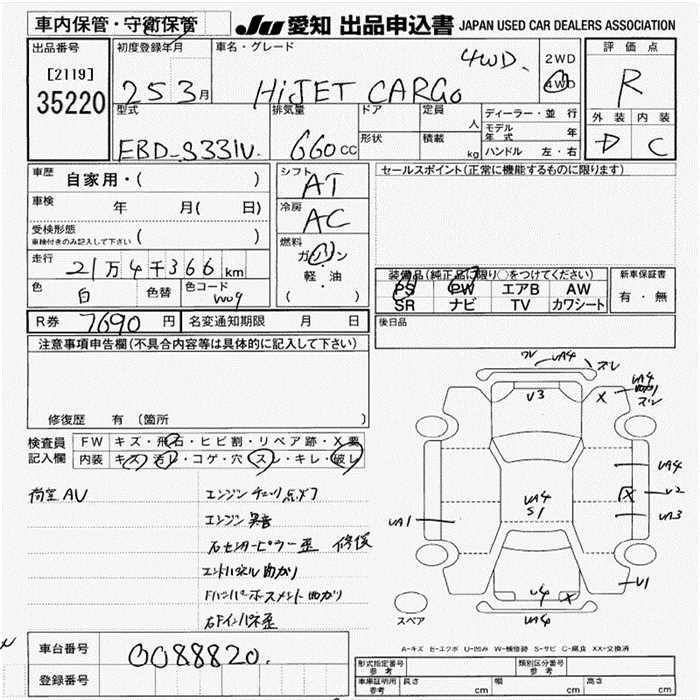 車内保管・守衛保管
JU 愛知 出品申込書 JAPAN USED CAR DEALERS ASSOCIATION
出品番号
[2119]
35220
初度登録年月
25 3月
車名・グレード
HiJET CARGo
4WD
2WD
4WD
評価点
R
外装 内装
D C
型式
EBD-S331V
排気量
660 CC
ドア
形状
定員
人
積載
kg
ディーラー・並行
モデル年式 年
ハンドル 左・右
車歴 自家用・( )
車検 年 月( 日)
受検形態
車検付きのみ記入して下さい ( )
走行
21万4千366km
色 白 色替
色コード W09
シフト
AT
冷房
AC
燃料
ガソリン
軽・油
( )
セールスポイント(正常に機能するものに限ります)
装備品(純正品に限り○をつけてください)
PS PW エアB AW
SR ナビ TV カワシート
新車保証書
有・無
R券 7690 円 名変通知期限 月 日
後日品
注意事項申告欄(不具合内容等は具体的に記入して下さい)
修復歴 有 (箇所 )
検査員記入欄
FW キズ・飛石・ヒビ割・リペア跡・X要
内装 キズ・汚レ・コゲ・穴・スレ・キレ・破レ
荷室AV
エンジンチェック点灯
エンジン異音
右センターピラー歪 修復
エンドパネル曲がり
右Fインパネ歪
ワレ UA4 ズレ
U3
X
UA4
曲がり
ズレ
UA4
X U2
UA3
UA4
S1
UA1
U1
U4 X
UA4
スペア
A-キズ E-エクボ U-凹み W-補修跡 S-サビ C-腐食 XX-交換済
車台番号 0088820.
登録番号
型式指定番号
参考
類別区分番号
参考
車庫証明用
参考
長さ cm 幅 cm 高さ cm